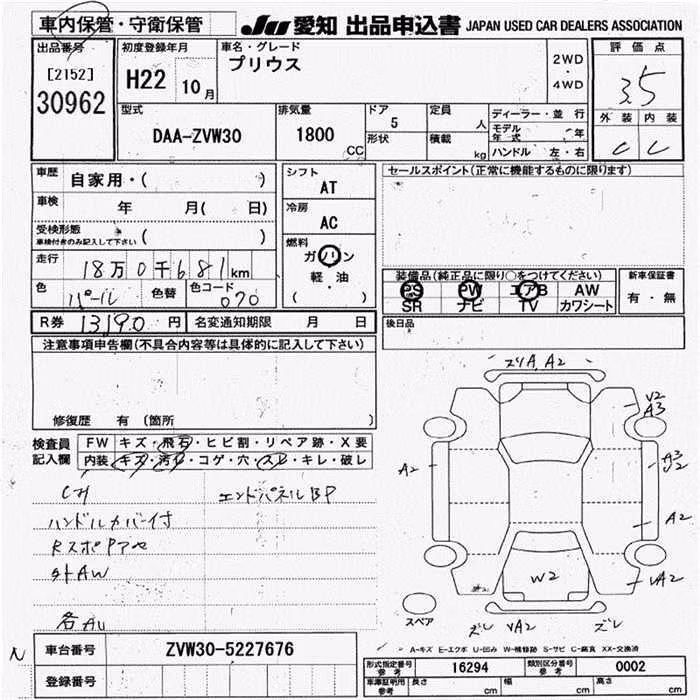 車内保管・守衛保管
JU 愛知 出品申込書 JAPAN USED CAR DEALERS ASSOCIATION
出品番号
[2152]
30962
初度登録年月
H22 10月
車名・グレード
プリウス
2WD
・
4WD
評価点
3.5
外装 内装
C C
型式
DAA-ZVW30
排気量
1800 CC
ドア
5
形状
定員
人
積載
kg
ディーラー・並行
モデル年式 年
ハンドル 左・右
車歴 自家用・( )
車検 年 月( 日)
受検形態
車検付きのみ記入して下さい ( )
走行 18万0千681km
色 パール 色替 色コード 070
シフト
AT
冷房
AC
燃料
ガソリン
・
軽・油
( )
セールスポイント(正常に機能するものに限ります)
装備品(純正品に限り○をつけてください)
PS PW エアB AW
SR ナビ TV カワシート
新車保証書
有・無
R券 13190円 名変通知期限 月 日
後日品
注意事項申告欄(不具合内容等は具体的に記入して下さい)
修復歴 有 (箇所 )
検査員記入欄
FW キズ・飛石・ヒビ割・リペア跡・X要
内装 キズ・汚れ・コゲ・穴・スレ・キレ・破レ
エンドパネルBP
ハンドルカバー付
外AW
A2
V2
A3
A3
A2
A2
W2
スペア
ズレ
ズレ
A-キズ E-エクボ U-凹み W-補修跡 S-サビ C-腐食 XX-交換済
車台番号 ZVW30-5227676
登録番号
形式指定番号 参考 16294 類別区分番号 参考 0002
車庫証明用 参考 長さ cm 幅 cm 高さ cm